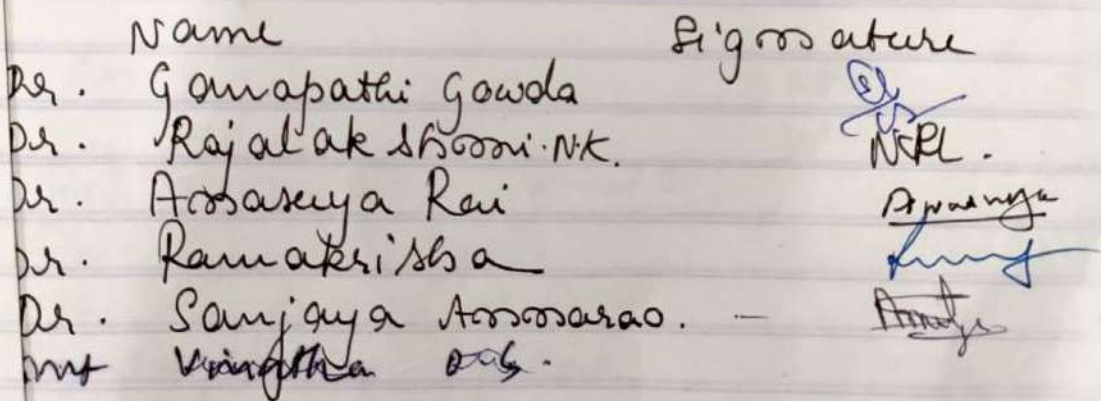 Name Signature
Dr. Ganapathi Gowda
Dr. Rajalakshmi N.K. NRPL.
Dr. Anasuya Rai Anasuya
Dr. Ramakrishna
Dr. Sanjaya Annarao. -